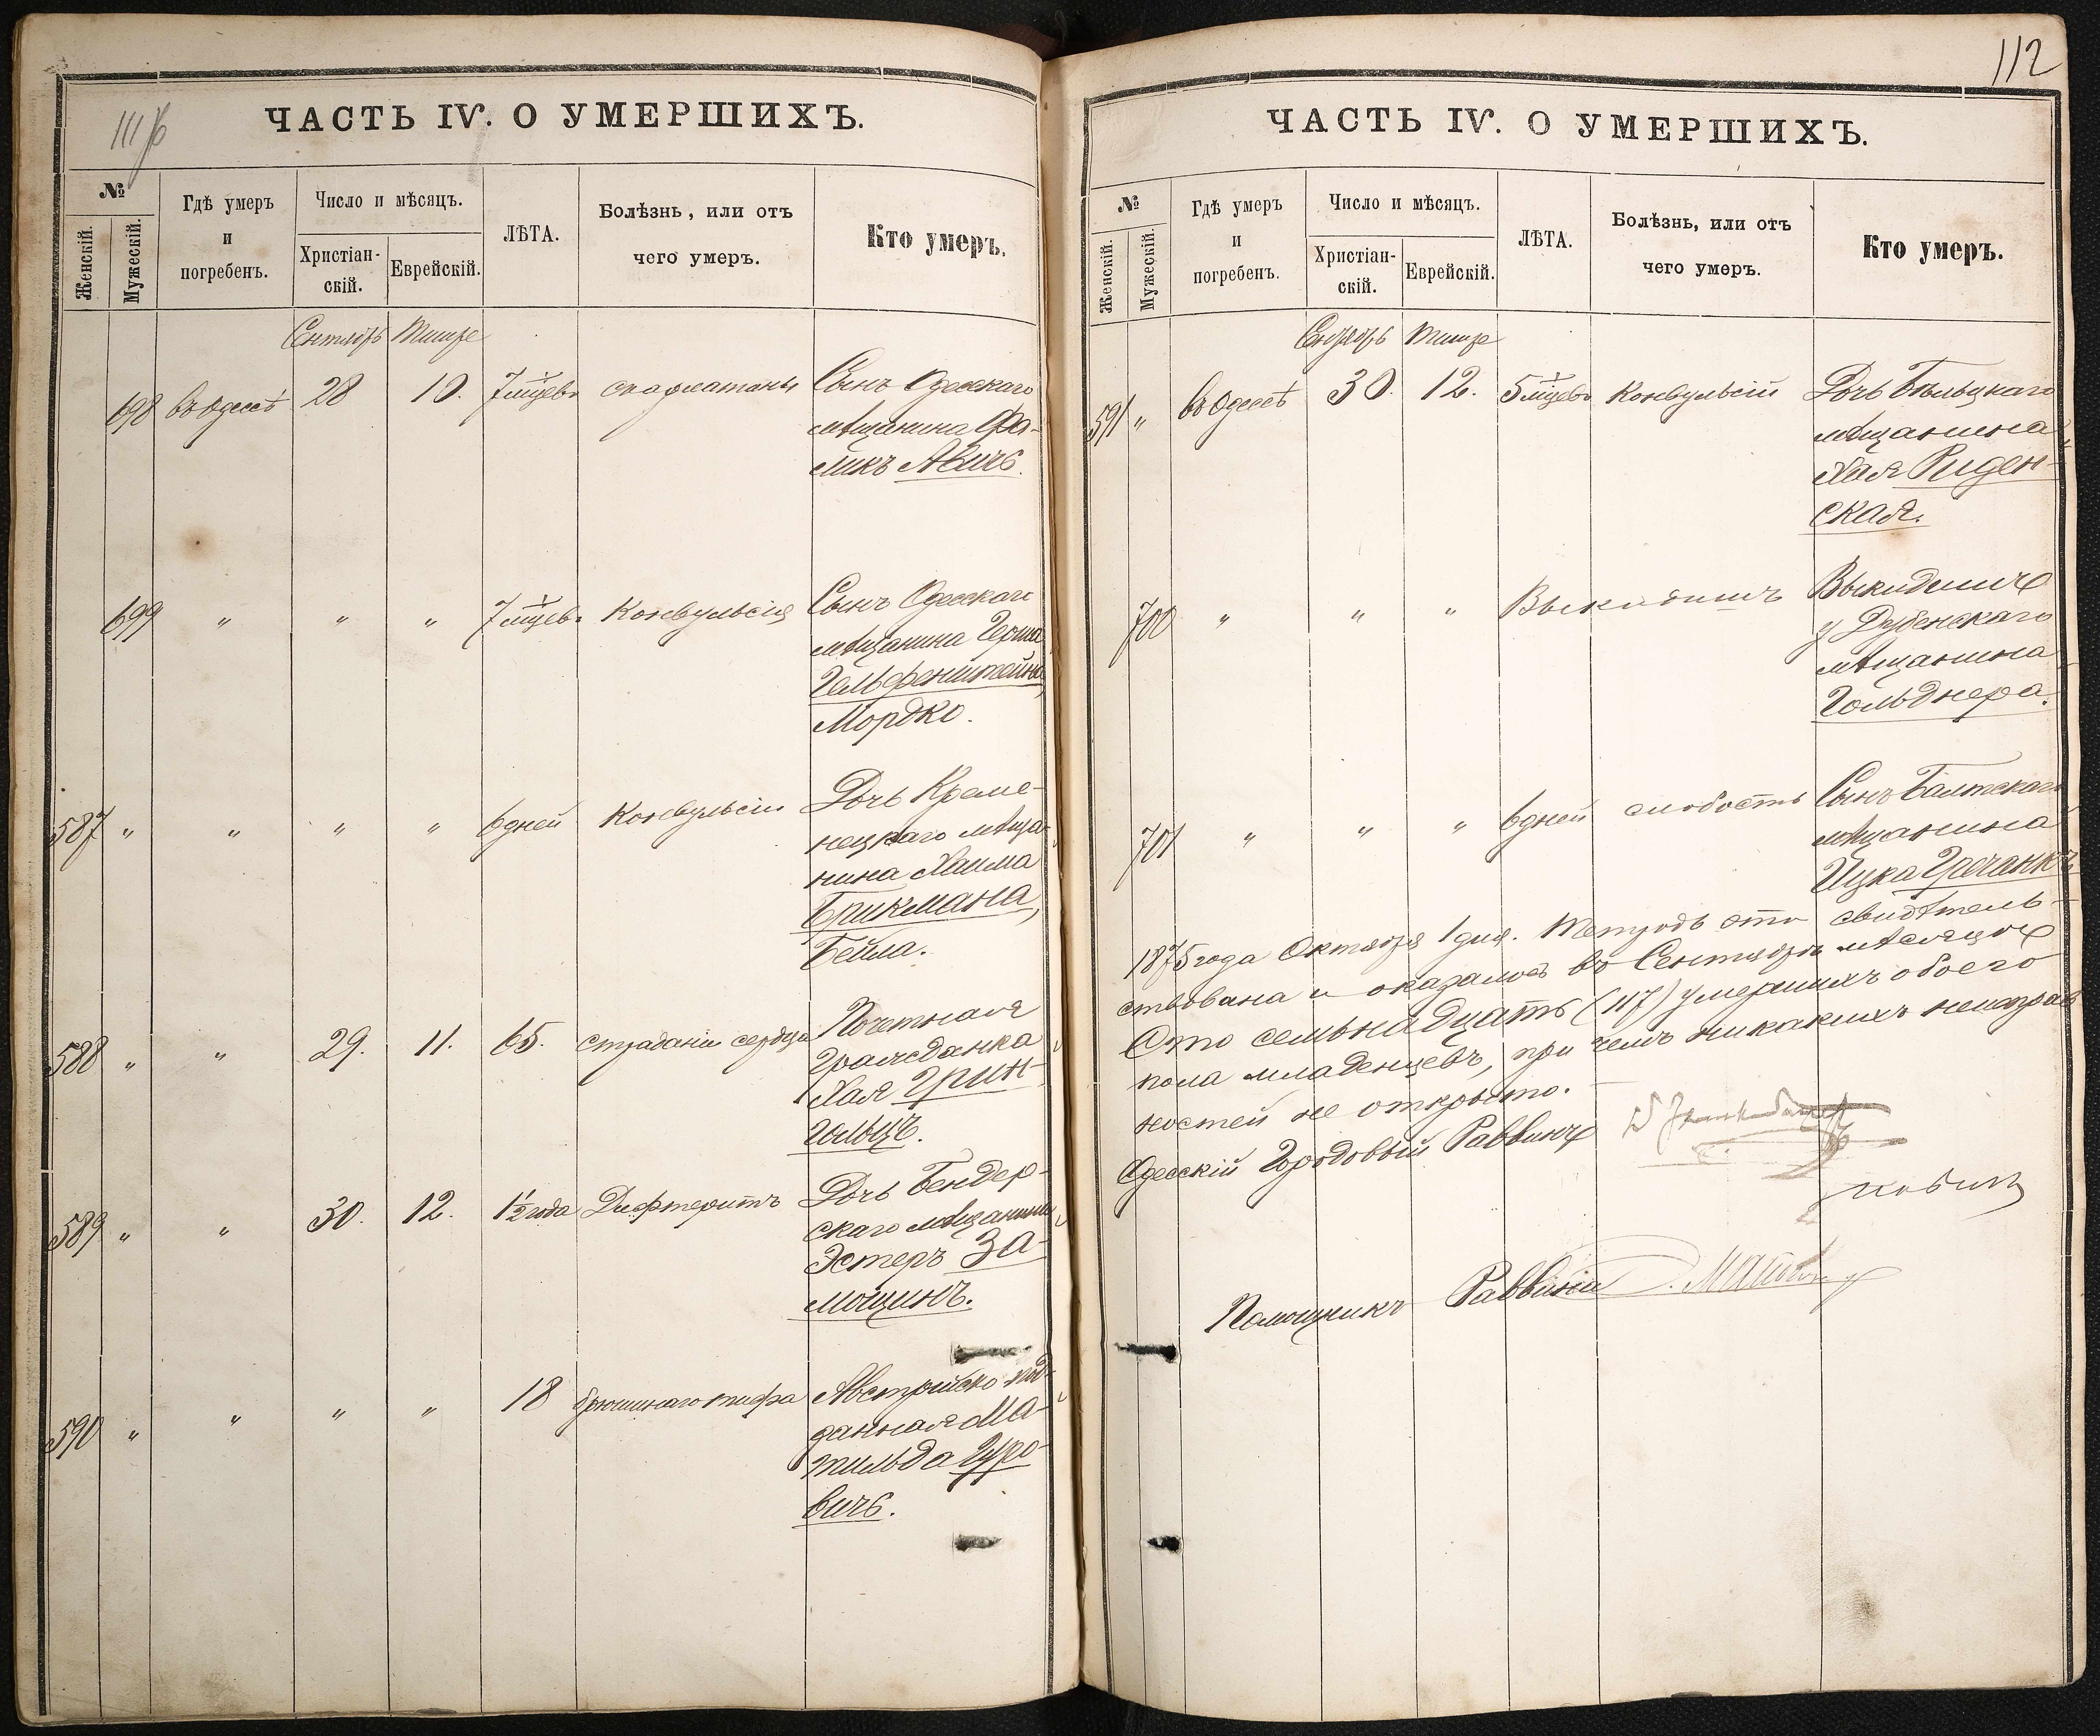 111 об
ЧАСТЬ IV. О УМЕРШИХЪ.
№
Женскій.
Мужескій.
Гдѣ умеръ
и
погребенъ.
Число и мѣсяцъ.
Христіан-
скій.
Еврейскій.
ЛѢТА.
Болѣзнь, или отъ
чего умеръ.
Кто умеръ.
Сентябрь Тишре
698 въ Одессѣ 28 10. 7 мѣсцевъ скарлатины Сынъ Одесскаго
мѣщанина Фа-
ликъ Авичъ.
699 " " " 7 мѣсцевъ Конвульсія Сынъ Одесскаго
мѣщанина Герша
Гельфенштейна,
Мордко.
587 " " " " 6 дней Конвульсіи Дочь Креме-
нецкаго мѣща-
нина Хаима
Брикмана,
Бейла.
588 " " 29. 11. 65. страданіи сердца Почетная
Гражданка
Хая Грин-
гольцъ.
589 " " 30. 12. 1½ года Дифтеритъ Дочь Бендер-
скаго мѣщанина
Эстеръ За-
мощинъ.
590 " " " " 18 брюшнаго тифа Австрійско под-
данная Ма-
тильда Гуро-
вичъ.
112
ЧАСТЬ IV. О УМЕРШИХЪ.
№
Женскій.
Мужескій.
Гдѣ умеръ
и
погребенъ.
Число и мѣсяцъ.
Христіан-
скій.
Еврейскій.
ЛѢТА.
Болѣзнь, или отъ
чего умеръ.
Кто умеръ.
Сентябрь Тишре
591 " въ Одессѣ 30. 12. 5 мѣсцевъ Конвульсіи Дочь Бѣльцкаго
мѣщанина
Хая Риден-
ская.
700 " " " Выкидышъ Выкидышъ
у Дубенскаго
мѣщанина
Гольднера.
701 " " " 6 дней слабость Сынъ Балтскаго
мѣщанина
Ицка Гречаникъ
1875 года Октября 1 дня. Тетрадь эта свидѣтель-
ствована и оказалось въ Сентябрѣ мѣсяцѣ
Сто семьнадцать (117) умершихъ обоего
пола младенцевъ, при чемъ никакихъ неисправ
ностей не открыто.
Одесскій Городовой Раввинъ
Помощникъ Раввина